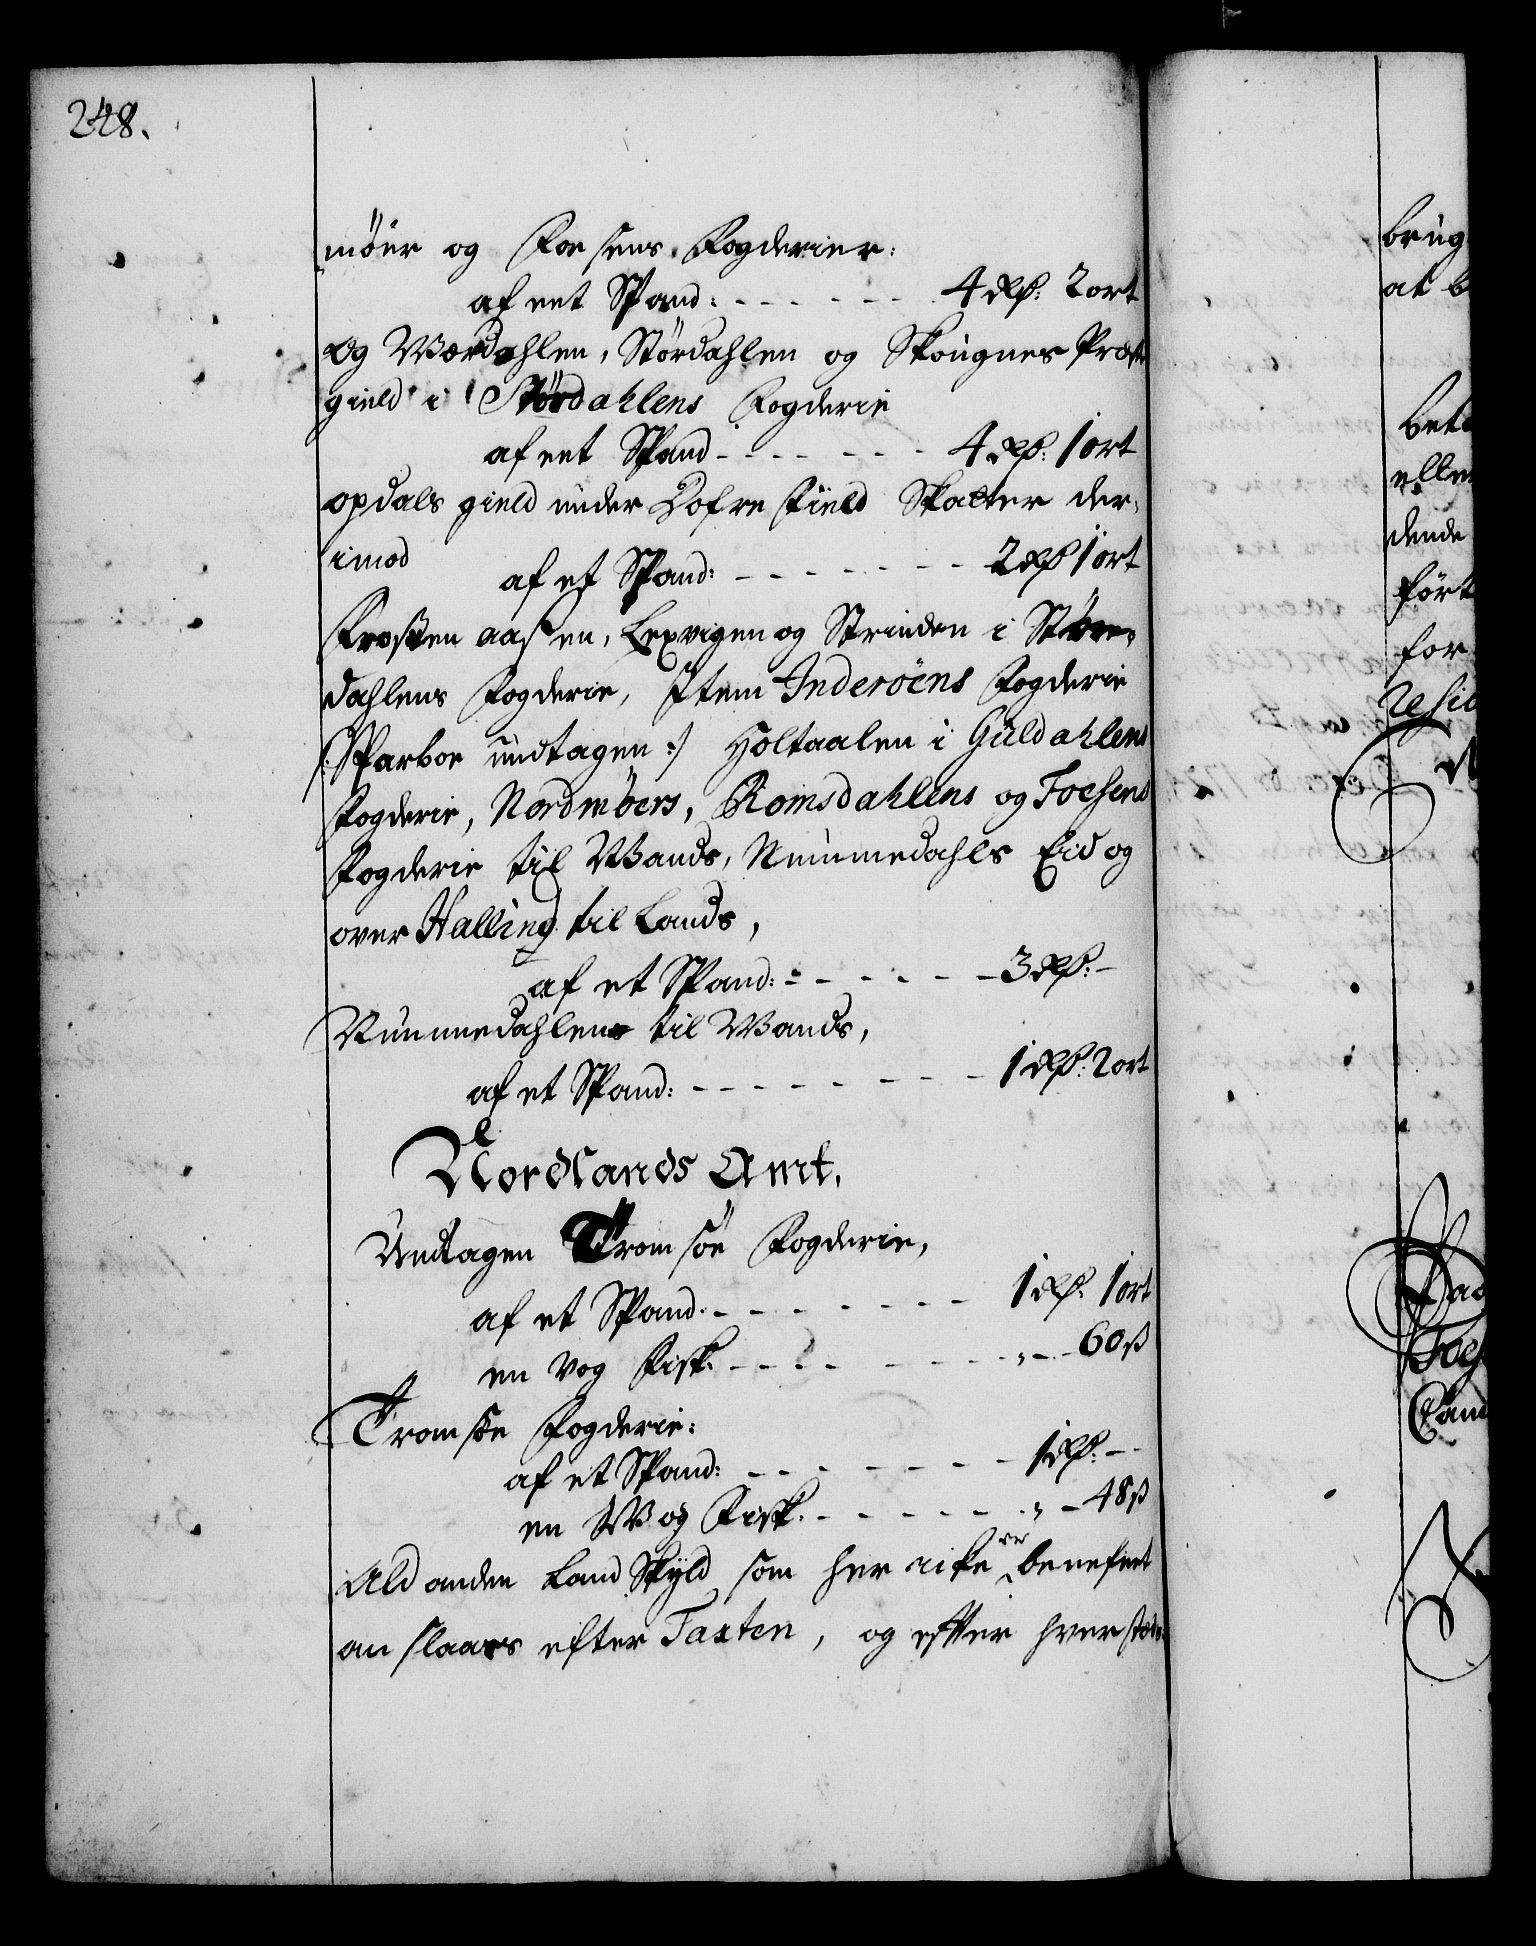 248.
möer og Foesens Fogderier:
af eet Spand: - - - - - - 4 rdß: 2 ort
og Wærdahlen, Stördahlen og Skougnes Præste
gield i Stördahlens Fogderie
af eet Spand - - - - - - 4 rdß: 1 ort
opdals gield under Dofre Field Skatter der,
imod
af et Spand: - - - - - - - 2 rdß 1 ort
Frosten aaßen, Lexvigen og Strinden i Støre,
dahlens Fogderie, Item Inderöens Fogderie
/: Sparboe undtagen :/ Holtaalen i Guldahlens
Fogderie, Nordmöers, Romsdahlens og Foesens
Fogderie til Wands, Nummedahls Eid og
over Halling til Lands,
af et Spand: - - - - - - 3 rdß: -
Nummedahlen til Wands,
af et Spand: - - - - - - - - 1 rdß: 2 ort
Nordlands Amt.
Undtagen Tromsöe Fogderie,
af et Spand. - - - - - - - 1 rdß: 1 ort
en vog Fisk. - - - - - - - - „ - - 60 ß
Tromsöe Fogderie:
af et Spand: - - - - - - - 1 rdß: - -
en Wog Fisk. - - - - - - „ - 48 ß
Ald anden Land Skyld som her icke er benefnt
an slaaes efter Taxten, og efter hver stæds
brug
at b
bet
elle
dende
ført
for
resid
Foes